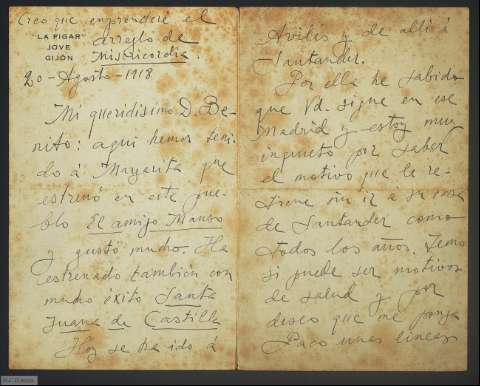 Creo que emprenderé el
arreglo de
Misericordia.
"LA FIGAR"
JOVE
GIJÓN
20-Agosto-1918
Mi queridísimo D. Be-
nito: aqui hemos teni-
do á Margarita que
estrenó en este pue-
blo El amigo Manso
y gustó mucho. Ha
estrenado tambien con
mucho éxito Santa
Juana de Castilla
Hoy se ha ido á
Avilés y de alli á
Santander.
Por ella he sabido
que Vd. sigue en ese
Madrid y estoy muy
inquieto por saber
el motivo que le re-
tiene sin ir a su casa
de Santander como
todos los años. Temo
si puede ser motivos
de salud y por
deseo que me ponga
Paco unas lineas